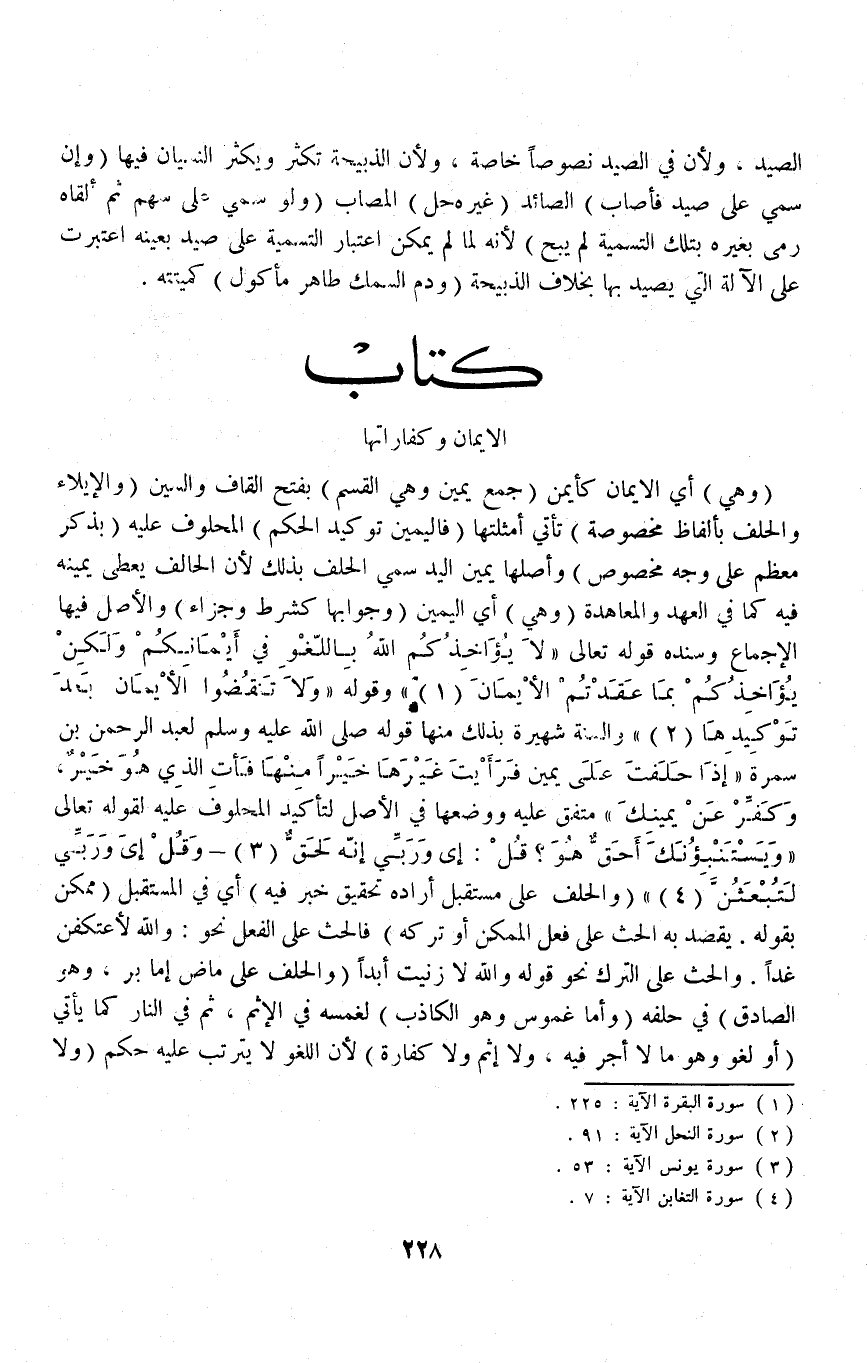 الصيد ، ولأن في الصيد نصوصاً خاصة ، ولأن الذبيحة تكثر ويكثر النسيان فيها ( وإن
سمي على صيد فأصاب ) الصائد ( غيره حل ) المصاب ( ولو سمي على سهم ثم ألقاه
رمى بغيره بتلك التسمية لم يبح ) لأنه لما لم يمكن اعتبار التسمية على صيد بعينه اعتبرت
على الآلة التي يصيد بها بخلاف الذبيحة ( ودم السمك طاهر مأكول ) كميتته .
كتاب
الايمان وكفاراتها
( وهي ) أي الايمان كأيمن ( جمع يمين وهي القسم ) بفتح القاف والسين ( والإيلاء
والحلف بألفاظ مخصوصة ) تأتي أمثلتها ( فاليمين توكيد الحكم ) المحلوف عليه ( بذكر
معظم على وجه مخصوص ) وأصلها يمين اليد سمي الحلف بذلك لأن الحالف يعطى يمينه
فيه كما في العهد والمعاهدة ( وهي ) أي اليمين ( وجوابها كشرط وجزاء ) والأصل فيها
الإجماع وسنده قوله تعالى « لاَ يُؤَاخِذُكُم اللهُ بِاللّغْوِ في أَيْمَانِكُمْ وَلَكِنْ
يُؤَاخِذُكُمْ بمَا عَقَدْتُمْ الأَيْمَانَ ( ١ ) » وقوله « وَلاَ تَنقُضُوا الأَيْمَانَ بَعْدَ
تَوْكِيدِهَا ( ٢ ) » والسنة شهيرة بذلك منها قوله صلى الله عليه وسلم لعبد الرحمن بن
سمرة « إذَا حَلَفَتَ عَلَى يمين فَرَأَيتَ غَيْرَهَا خَيْراً مِنْهَا فَأت الذي هُوَ خَيْرٌ ،
وَكَفِّرْ عَنْ يمينِكَ » متفق عليه ووضعها في الأصل لتأكيد المحلوف عليه لقوله تعالى
« وَيَسْتَنْبِؤُنَكَ أَحَقٌّ هُوَ ؟ قُلْ : إى وَرَبِّي إنّه لَحَقٌّ ( ٣ ) – وَقُلْ إىَ وَرَبِّي
لَتُبْعَثُنَّ ( ٤ ) » ( والحلف على مستقبل أراده تحقيق خبر فيه ) أي في المستقبل ( ممكن
بقوله . يقصد به الحث على فعل الممكن أو تركه ) فالحث على الفعل نحو : والله لأعتكفن
غداً . والحث على الترك نحو قوله والله لا زنيت أبداً ( والحلف على ماض إما بر ، وهو
الصادق ) في حلفه ( وأما غموس وهو الكاذب ) لغمسه في الإثم ، ثم في النار كما يأتي
( أو لغو وهو ما لا أجر فيه ، ولا إثم ولا كفارة ) لأن اللغو لا يترتب عليه حكم ( ولا
( ١ ) سورة البقرة الآية : ٢٢٥ .
( ٢ ) سورة النحل الآية : ٩١ .
( ٣ ) سورة يونس الآية : ٥٣ .
( ٤ ) سورة التغابن الآية : ٧ .
٢٢٨